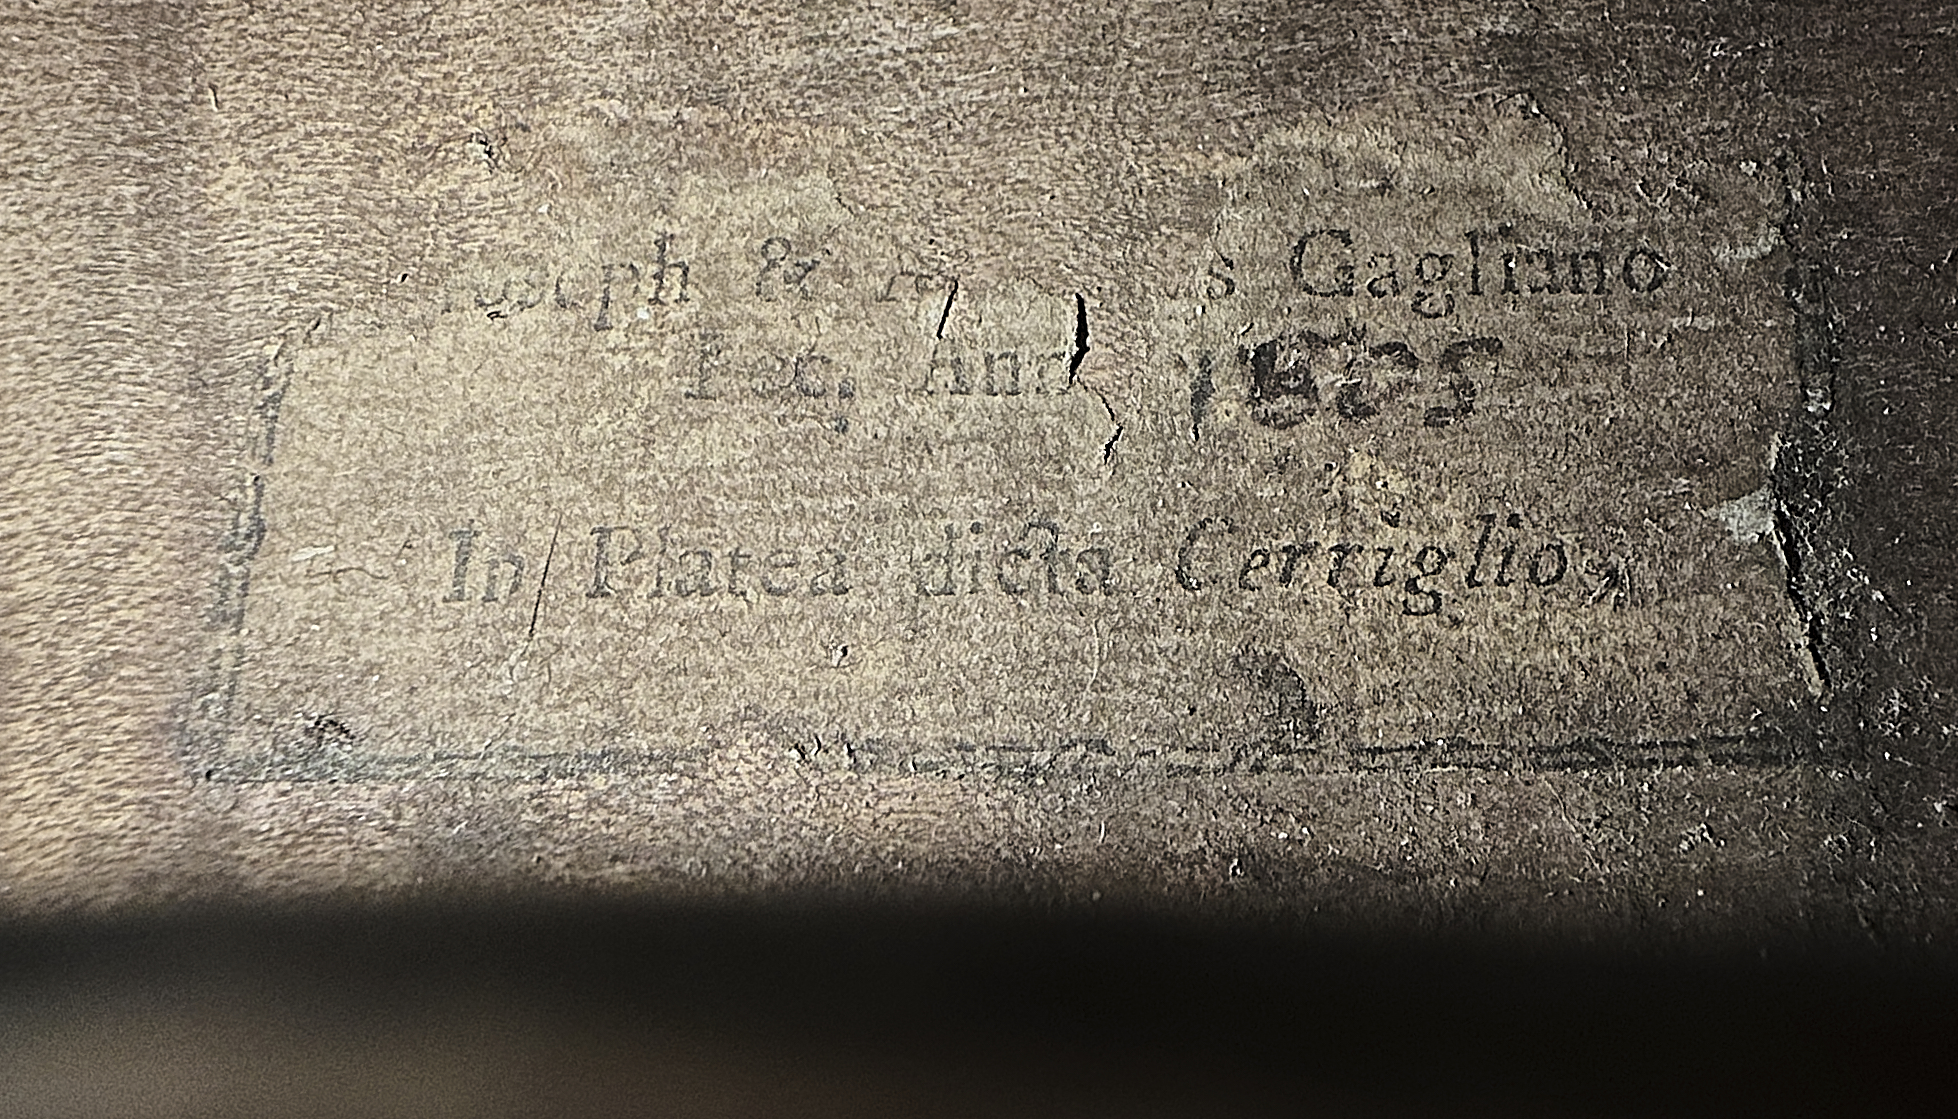 Joseph & Gagliano
Fec. Anno 1805
In Platea dicta Cerriglio,